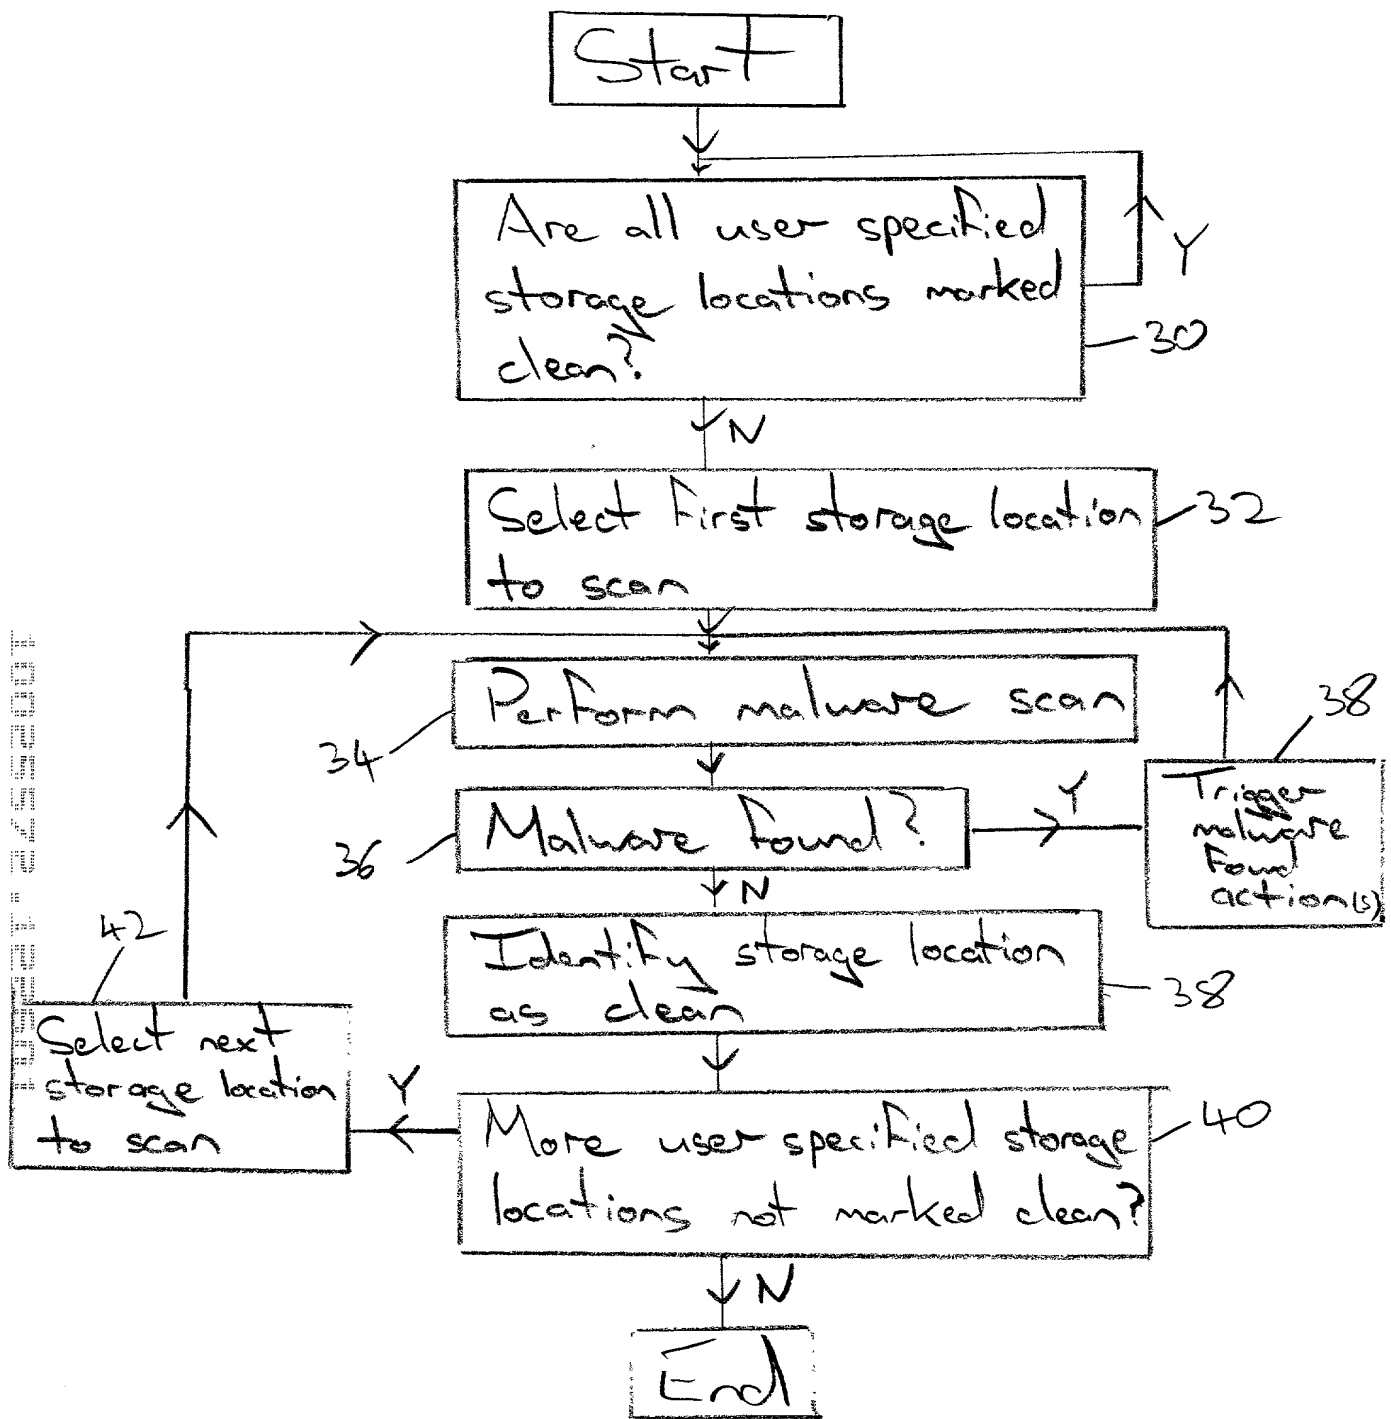 Start
Are all user specified
storage locations marked
clean?
Y
30
N
Select first storage location
to scan
32
Perform malware scan
34
38
Malware found?
Y
36
Trigger
malware
found
action(s)
N
Identify storage location
as clean
38
42
Select next
storage location
to scan
Y
More user specified storage
locations not marked clean?
40
N
End